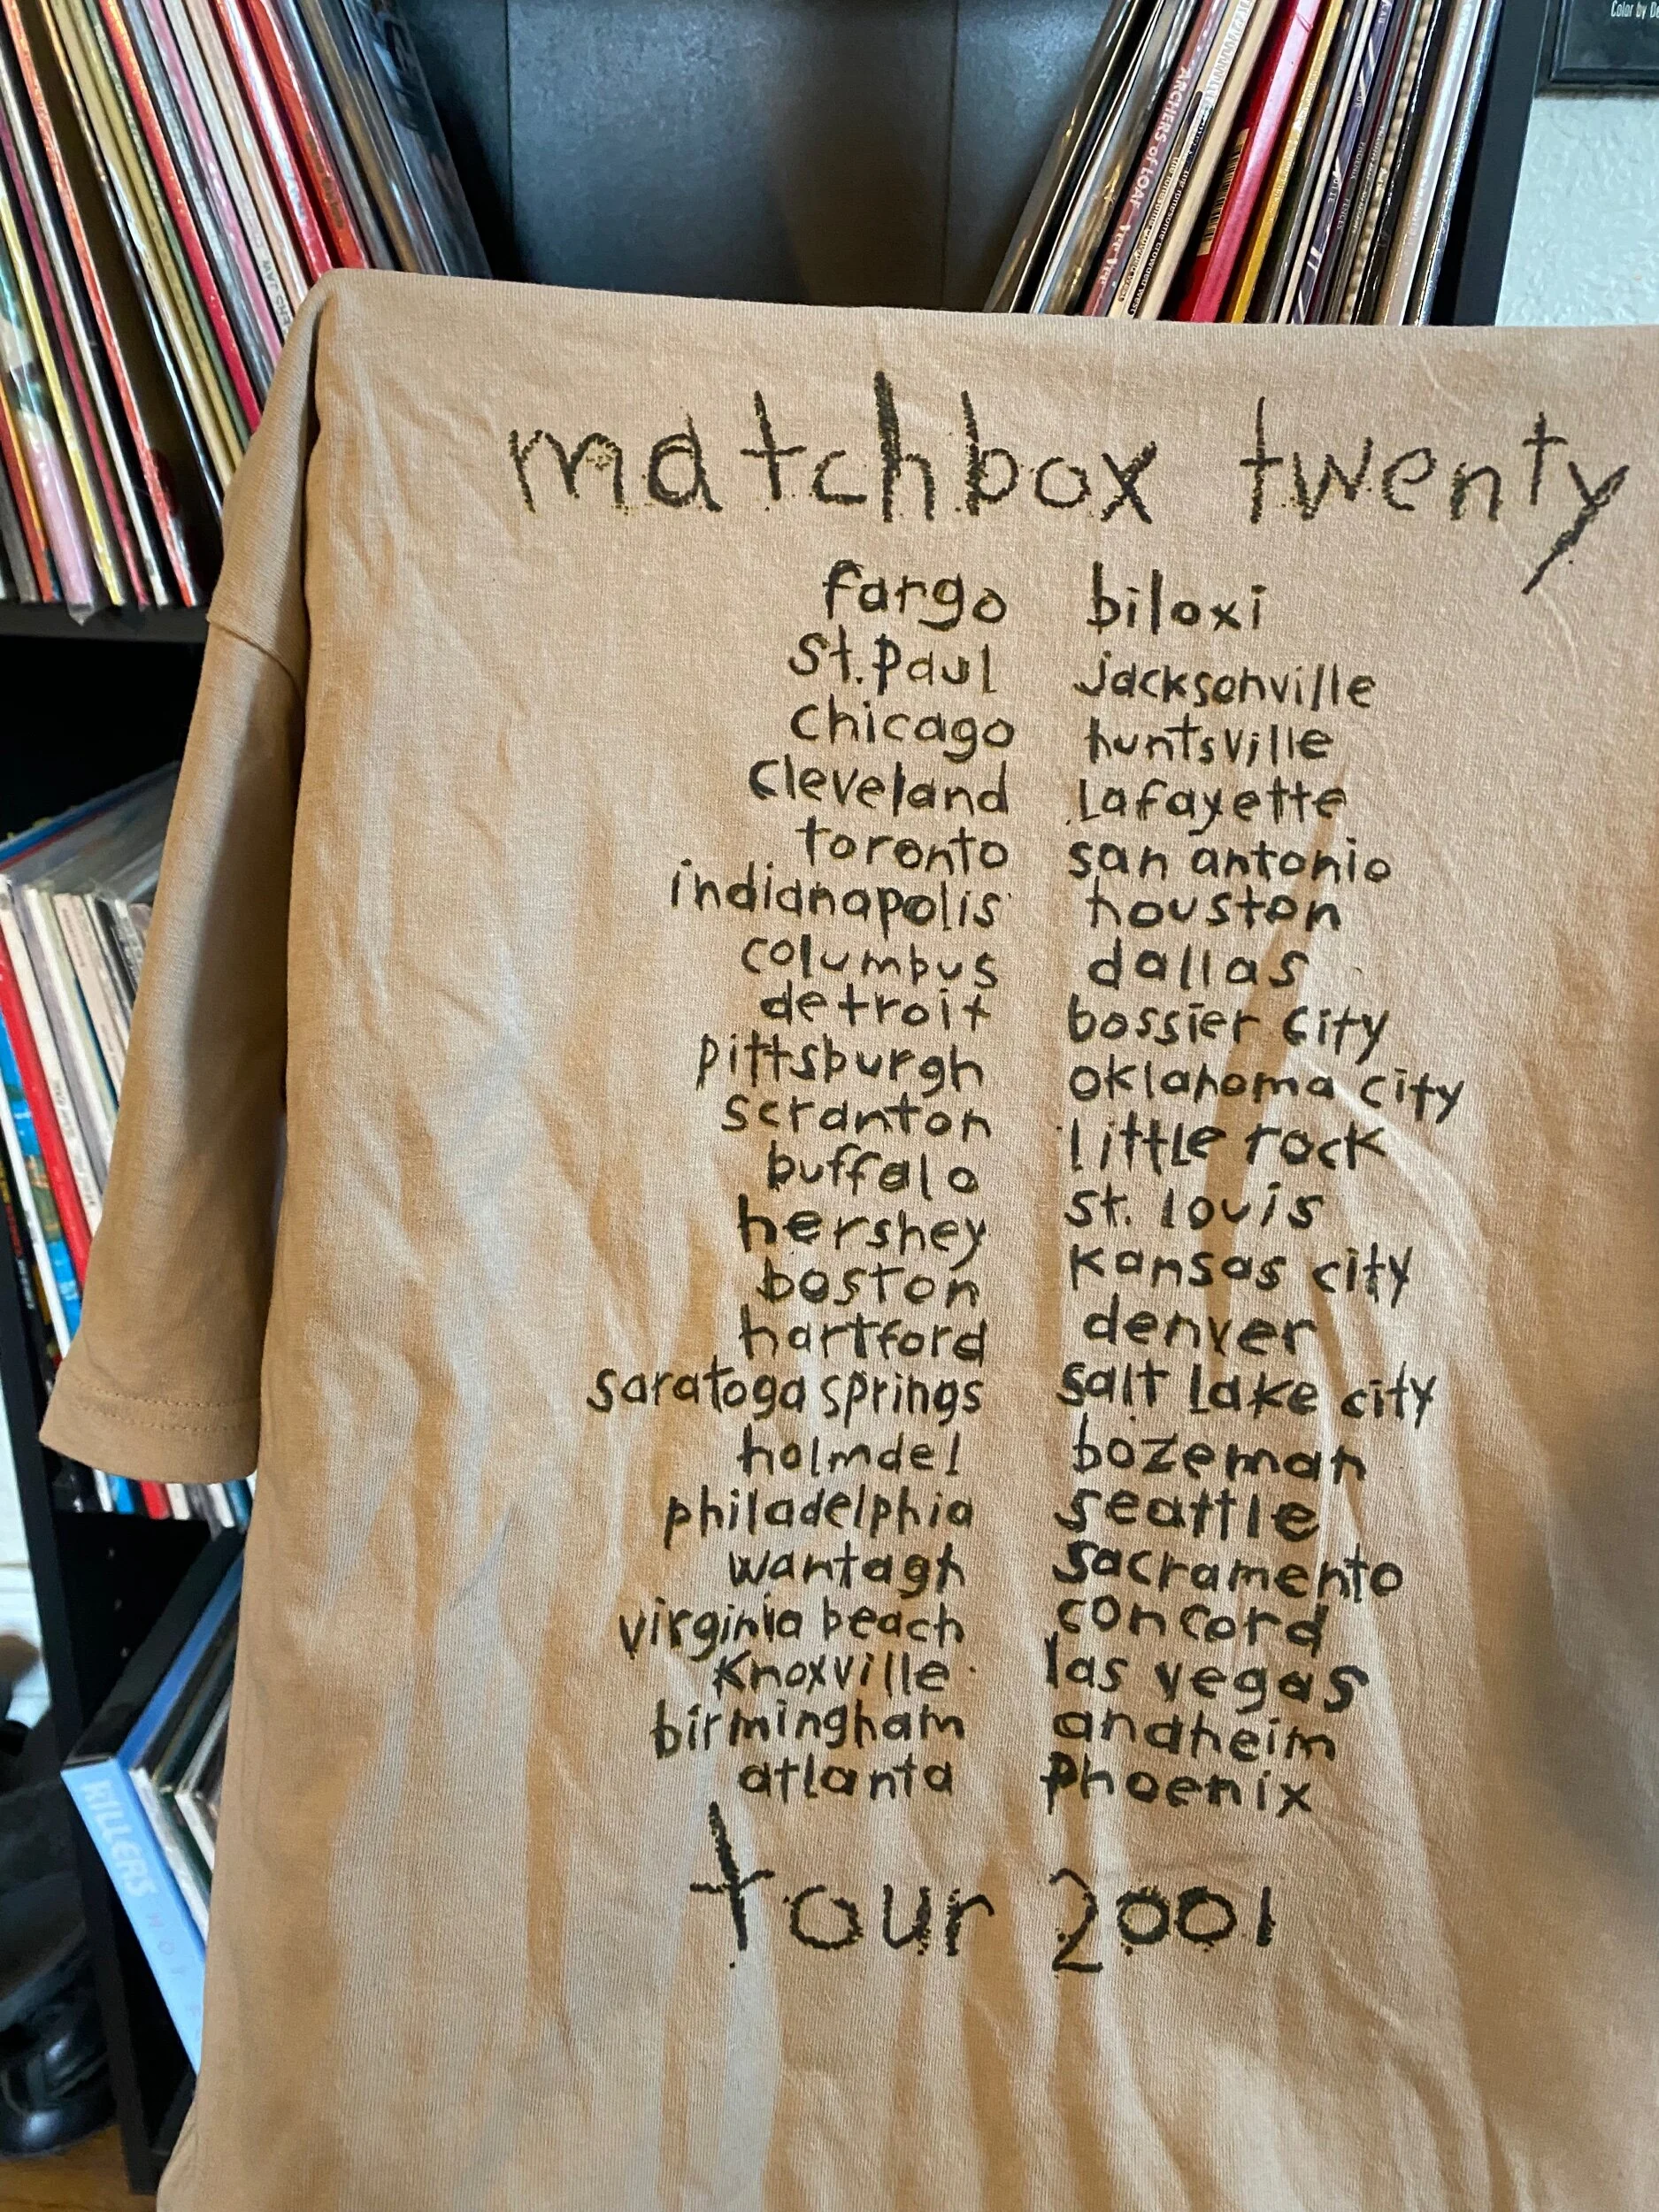 Color by De
ARCHERS of LOAF
vee vee
matchbox twenty
fargo
st. paul
chicago
cleveland
toronto
indianapolis
columbus
detroit
pittsburgh
scranton
buffalo
hershey
boston
hartford
saratoga springs
holmdel
philadelphia
wantagh
virginia beach
knoxville
birmingham
atlanta
biloxi
jacksonville
huntsville
lafayette
san antonio
houston
dallas
bossier city
oklahoma city
little rock
st. louis
kansas city
denver
salt lake city
bozeman
seattle
sacramento
concord
las vegas
anaheim
phoenix
tour 2001
KILLERS HOT